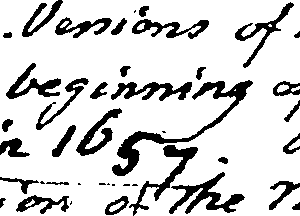 Versions of
beginning of
in 1657.
ion of the